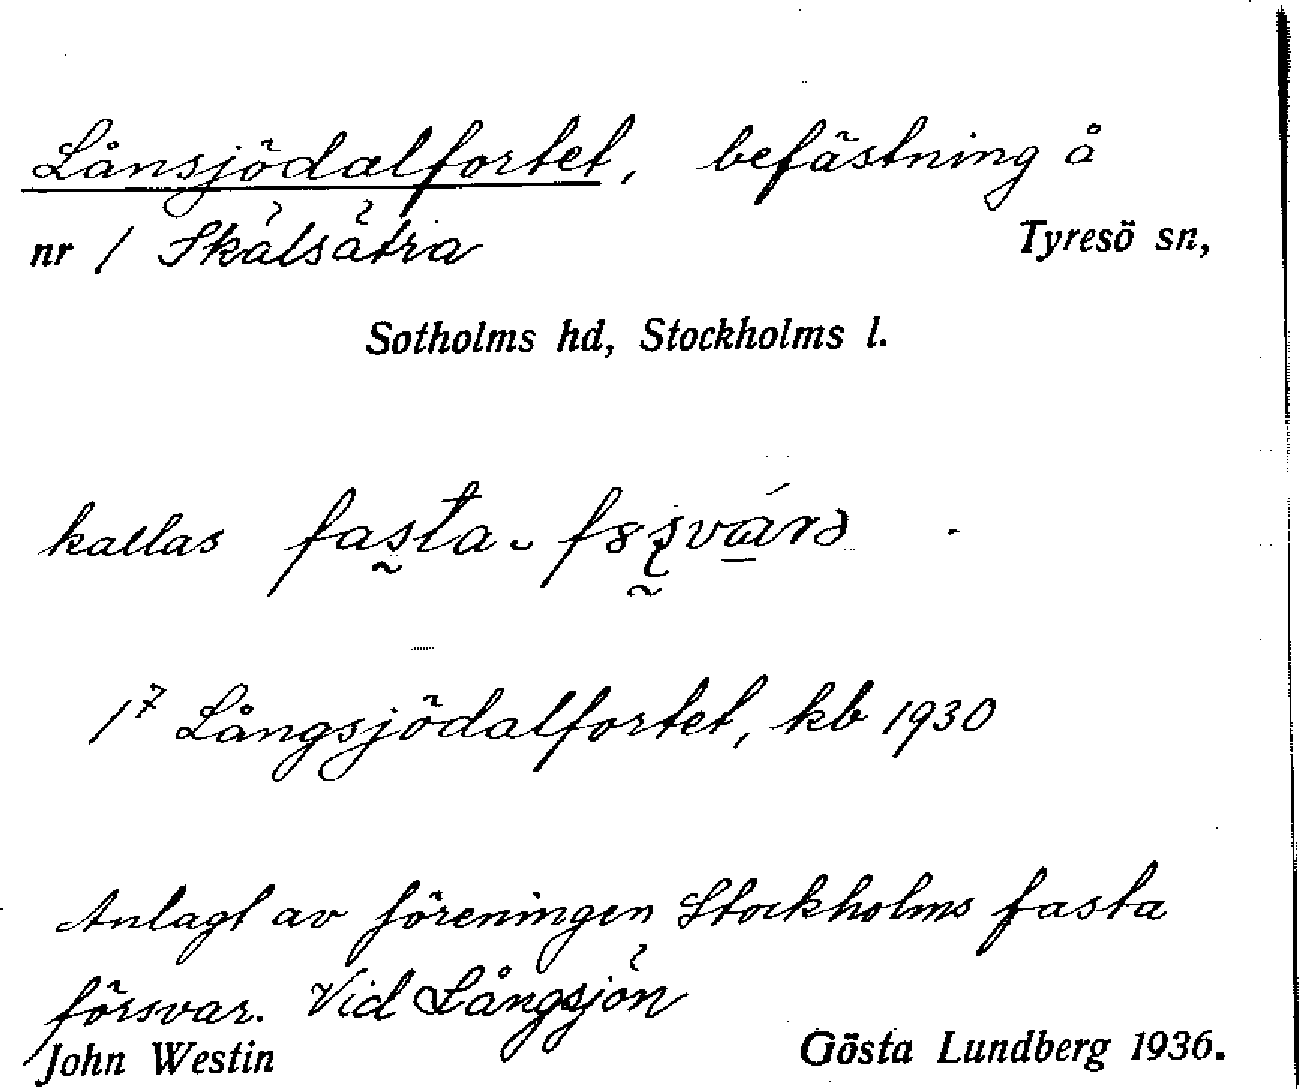 Lånsjödalfortet, befästning å
nr 1 Skälsätra Tyresö sn,
Sotholms hd, Stockholms l.
kallas fasta
17 Långsjödalfortet, kb 1930
Anlagt av föreningen Stockholms fasta
försvar. Vid Långsjön
John Westin Gösta Lundberg 1936.